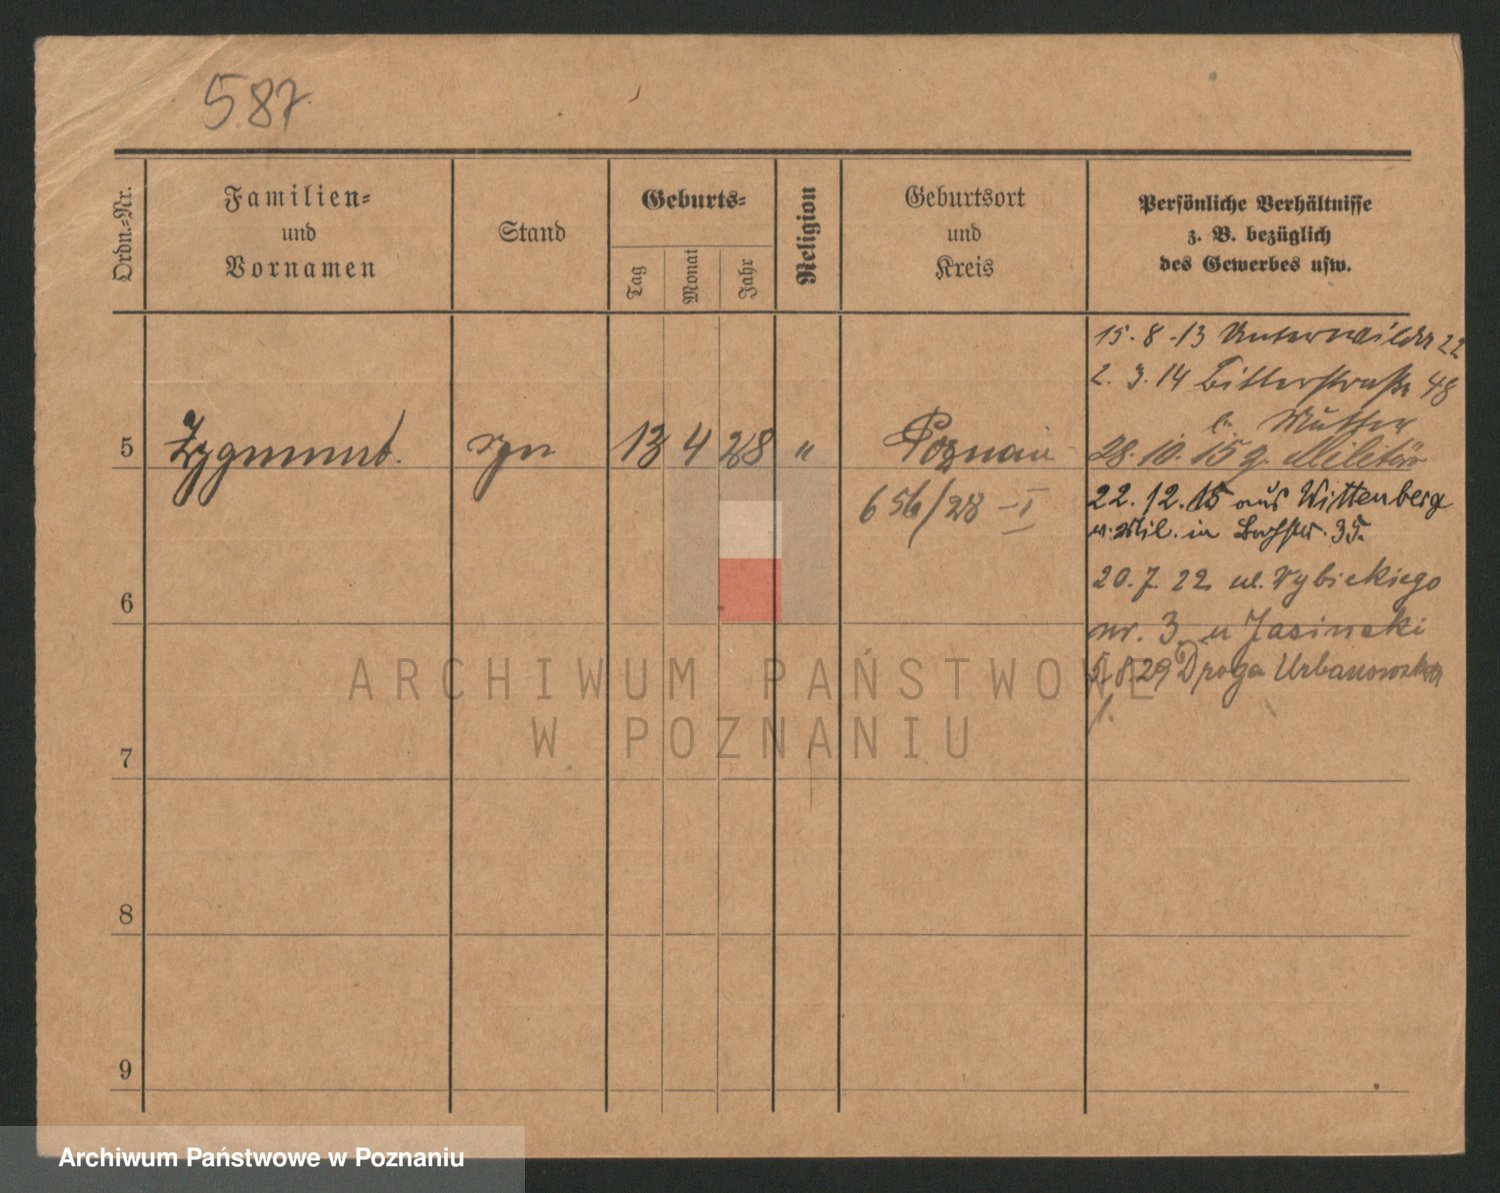 587
Ordn.-Nr.
Familien-
und
Vornamen
Stand
Geburts-
Tag
Monat
Jahr
Religion
Geburtsort
und
Kreis
Persönliche Verhältnisse
z. B. bezüglich
des Gewerbes usw.
15. 8. 13 Unterwilda 22
2. 3. 14 Bitterstraße 48
b. Mutter
5 Zygmunt. syn 13 4 28 " Poznań
28. 10. 15 z. Militär
656/28 - I
22. 12. 15 aus Wittenberg
v. Mil. in 35.
20. 7. 22 ul. Rybickiego
6
nr. 3 u Jasinski
5. 8. 29 Droga Urbanowska
1.
ARCHIWUM PAŃSTWOWE
W POZNANIU
7
8
9
Archiwum Państwowe w Poznaniu